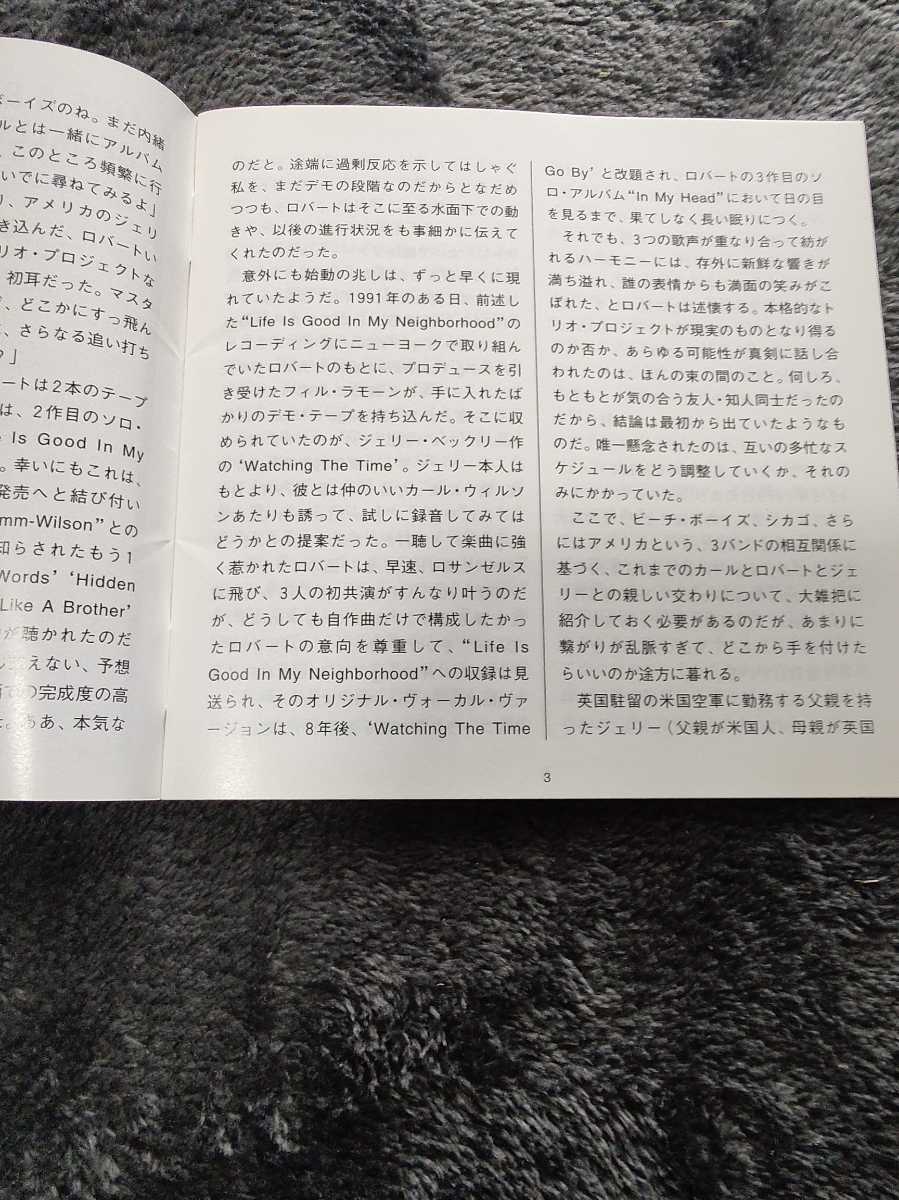 ーイズのね。まだ内緒
ルとは一緒にアルバム
、このところ頻繁に行
いでに尋ねてみるよ」
り、アメリカのジェリ
き込んだ、ロバートい
リオ・プロジェクトな
初耳だった。マスタ
、どこかにすっ飛ん
、さらなる追い打ち
」
ートは2本のテープ
は、2作目のソロ・
e Is Good In My
。幸いにもこれは、
発売へと結び付い
mm-Wilson”との
知らされたもう1
Words’ ‘Hidden
Like A Brother’
が聴かれたのだ
えない、予想
での完成度の高
。ああ、本気な
のだと。途端に過剰反応を示してはしゃぐ
私を、まだデモの段階なのだからとなだめ
つつも、ロバートはそこに至る水面下での動
きや、以後の進行状況をも事細かに伝えて
くれたのだった。
意外にも始動の兆しは、ずっと早くに現
れていたようだ。1991年のある日、前述し
た“Life Is Good In My Neighborhood”の
レコーディングにニューヨークで取り組ん
でいたロバートのもとに、プロデュースを引
き受けたフィル・ラモーンが、手に入れたば
かりのデモ・テープを持ち込んだ。そこに収
められていたのが、ジェリー・ベックリー作
の ‘Watching The Time’。ジェリー本人は
もとより、彼とは仲のいいカール・ウィルソ
ンあたりも誘って、試しに録音してみては
どうかとの提案だった。一聴して楽曲に強
く惹かれたロバートは、早速、ロサンゼルス
に飛び、3人の初共演がすんなり叶うのだ
が、どうしても自作曲だけで構成したかっ
たロバートの意向を尊重して、“Life Is
Good In My Neighborhood”への収録は見
送られ、そのオリジナル・ヴォーカル・ヴァ
ージョンは、8年後、‘Watching The Time
Go By’ と改題され、ロバートの3作目のソ
ロ・アルバム“In My Head”において日の目
を見るまで、果てしなく長い眠りにつく。
それでも、3つの歌声が重なり合って紡が
れるハーモニーには、存外に新鮮な響きが
満ち溢れ、誰の表情からも満面の笑みがこ
ぼれた、とロバートは述懐する。本格的なト
リオ・プロジェクトが現実のものとなり得る
のか否か、あらゆる可能性が真剣に話し合
われたのは、ほんの束の間のこと。何しろ、
もともとが気の合う友人・知人同士だったの
だから、結論は最初から出ていたようなも
のだ。唯一懸念されたのは、互いの多忙なス
ケジュールをどう調整していくか、それの
みにかかっていた。
ここで、ビーチ・ボーイズ、シカゴ、さら
にはアメリカという、3バンドの相互関係に
基づく、これまでのカールとロバートとジェ
リーとの親しい交わりについて、大雑把に
紹介しておく必要があるのだが、あまりに
繋がりが乱脈すぎて、どこから手を付けた
らいいのか途方に暮れる。
英国駐留の米国空軍に勤務する父親を持
ったジェリー（父親が米国人、母親が英国
3